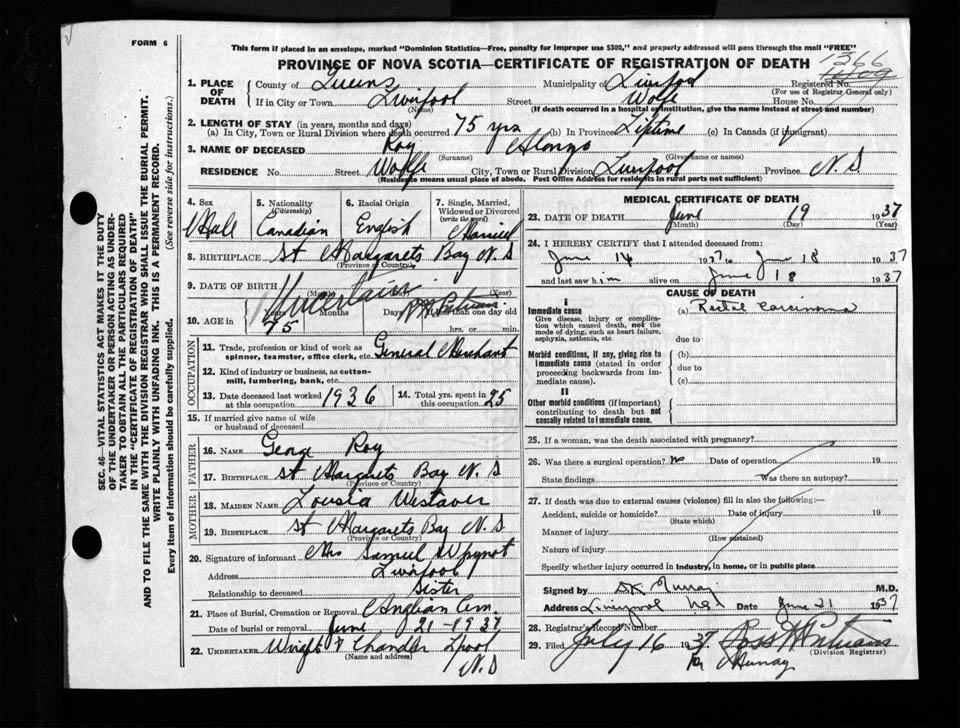 FORM 6
This form if placed in an envelope, marked "Dominion Statistics—Free, penalty for improper use $300," and properly addressed will pass through the mail "FREE"
PROVINCE OF NOVA SCOTIA—CERTIFICATE OF REGISTRATION OF DEATH
1366
1. PLACE OF DEATH
County of Queens Municipality of Liverpool Registered No.
(For use of Registrar General only)
If in City or Town Liverpool Street Wolfe House No.
(Name) (If death occurred in a hospital or institution, give the name instead of street and number)
2. LENGTH OF STAY (in years, months and days)
(a) In City, Town or Rural Division where death occurred 75 yrs (b) In Province Liftime (c) In Canada (if immigrant)
3. NAME OF DECEASED Roy Alonzo
(Surname) (Given name or names)
RESIDENCE No. Street Wolfe City, Town or Rural Division Liverpool Province N.S
(Residence means usual place of abode. Post Office Address for residents in rural parts not sufficient)
4. Sex
Male
5. Nationality
(Citizenship)
Canadian
6. Racial Origin
English
7. Single, Married, Widowed or Divorced
(write the word)
Married
8. BIRTHPLACE St Margarets Bay N.S
(Province or Country)
9. DATE OF BIRTH Uncertain
(Year)
10. AGE in 75
Years Months Days If less than one day old
hrs. or min.
OCCUPATION
11. Trade, profession or kind of work as spinner, teamster, office clerk, etc. General Merchant
12. Kind of industry or business, as cotton-mill, lumbering, bank, etc.
13. Date deceased last worked at this occupation 1936
14. Total yrs. spent in this occupation 25
15. If married give name of wife or husband of deceased
FATHER
16. NAME George Roy
17. BIRTHPLACE St Margarets Bay N.S
(Province or Country)
MOTHER
18. MAIDEN NAME Louisia Westaver
19. BIRTHPLACE St Margarets Bay N.S
(Province or Country)
20. Signature of informant Mrs Samuel Wynot
Address Liverpool
Relationship to deceased Sister
21. Place of Burial, Cremation or Removal Anglian Cem.
Date of burial or removal June 21-1937
22. UNDERTAKER Wright & Chandler Lpool
(Name and address)
N.S
MEDICAL CERTIFICATE OF DEATH
23. DATE OF DEATH June 19 1937
(Month) (Day) (Year)
24. I HEREBY CERTIFY that I attended deceased from:
June 14 1937 to June 18 1937
and last saw him alive on June 18 1937
CAUSE OF DEATH
I
Immediate cause
Give disease, injury or complication which caused death, not the mode of dying, such as heart failure, asphyxia, asthenia, etc.
(a) Rectal carcinoma
due to
Morbid conditions, if any, giving rise to immediate cause (stated in order proceeding backwards from immediate cause).
(b)
due to
(c)
II
Other morbid conditions (if important) contributing to death but not causally related to immediate cause.
25. If a woman, was the death associated with pregnancy?
26. Was there a surgical operation? no Date of operation 19
State findings Was there an autopsy?
27. If death was due to external causes (violence) fill in also the following:—
Accident, suicide or homicide? Date of injury 19
(State which)
Manner of injury
(How sustained)
Nature of injury
Specify whether injury occurred in industry, in home, or in public place
Signed by Murray M.D.
Address Liverpool N.S Date June 21 1937
28. Registrar's Record Number
29. Filed July 16 1937
(Division Registrar)
Murray
SEC. 46—VITAL STATISTICS ACT MAKES IT THE DUTY
OF THE UNDERTAKER OR PERSON ACTING AS UNDER-
TAKER TO OBTAIN ALL THE PARTICULARS REQUIRED
IN THE "CERTIFICATE OF REGISTRATION OF DEATH"
AND TO FILE THE SAME WITH THE DIVISION REGISTRAR WHO SHALL ISSUE THE BURIAL PERMIT.
WRITE PLAINLY WITH UNFADING INK. THIS IS A PERMANENT RECORD.
Every item of information should be carefully supplied. (See reverse side for instructions.)